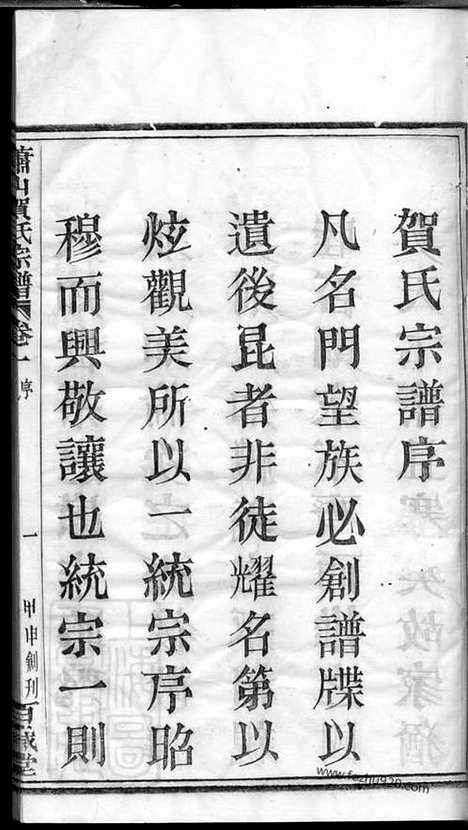 賀氏宗譜序
凡名門望族必創譜牒以
遺後昆者非徒耀名第以
炫觀美所以一統宗序昭
穆而興敬讓也統宗一則
蕭山賀氏宗譜 卷一 序 一 甲申創刊 百歲堂
www.fozhu920.com